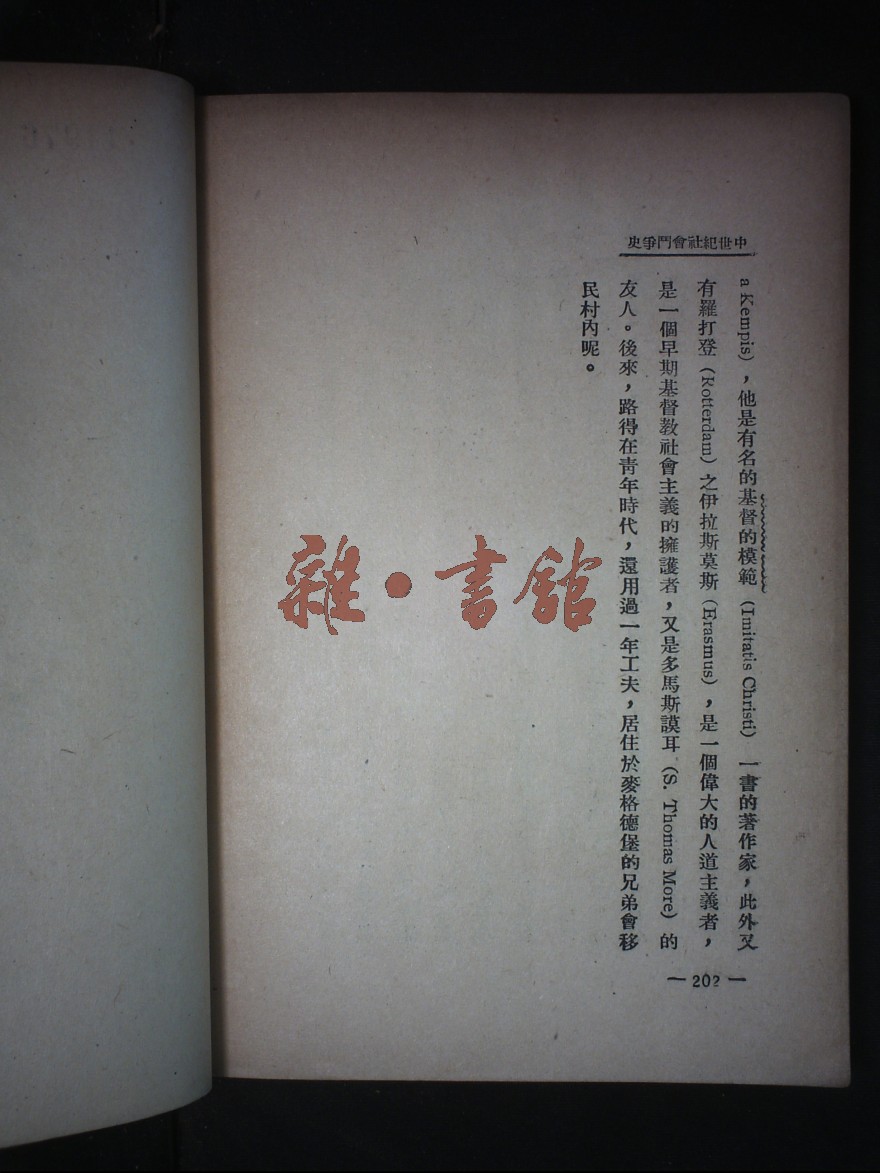 中世紀社會鬥爭史
a Kempis)，他是有名的基督的模範 (Imitatis Christi) 一書的著作家，此外又
有羅打登 (Rotterdam) 之伊拉斯莫斯 (Erasmus)，是一個偉大的人道主義者，
是一個早期基督教社會主義的擁護者，又是多馬斯謨耳 (S. Thomas More) 的
友人。後來，路得在靑年時代，還用過一年工夫，居住於麥格德堡的兄弟會移
民村內呢。
— 202 —
雜・書館